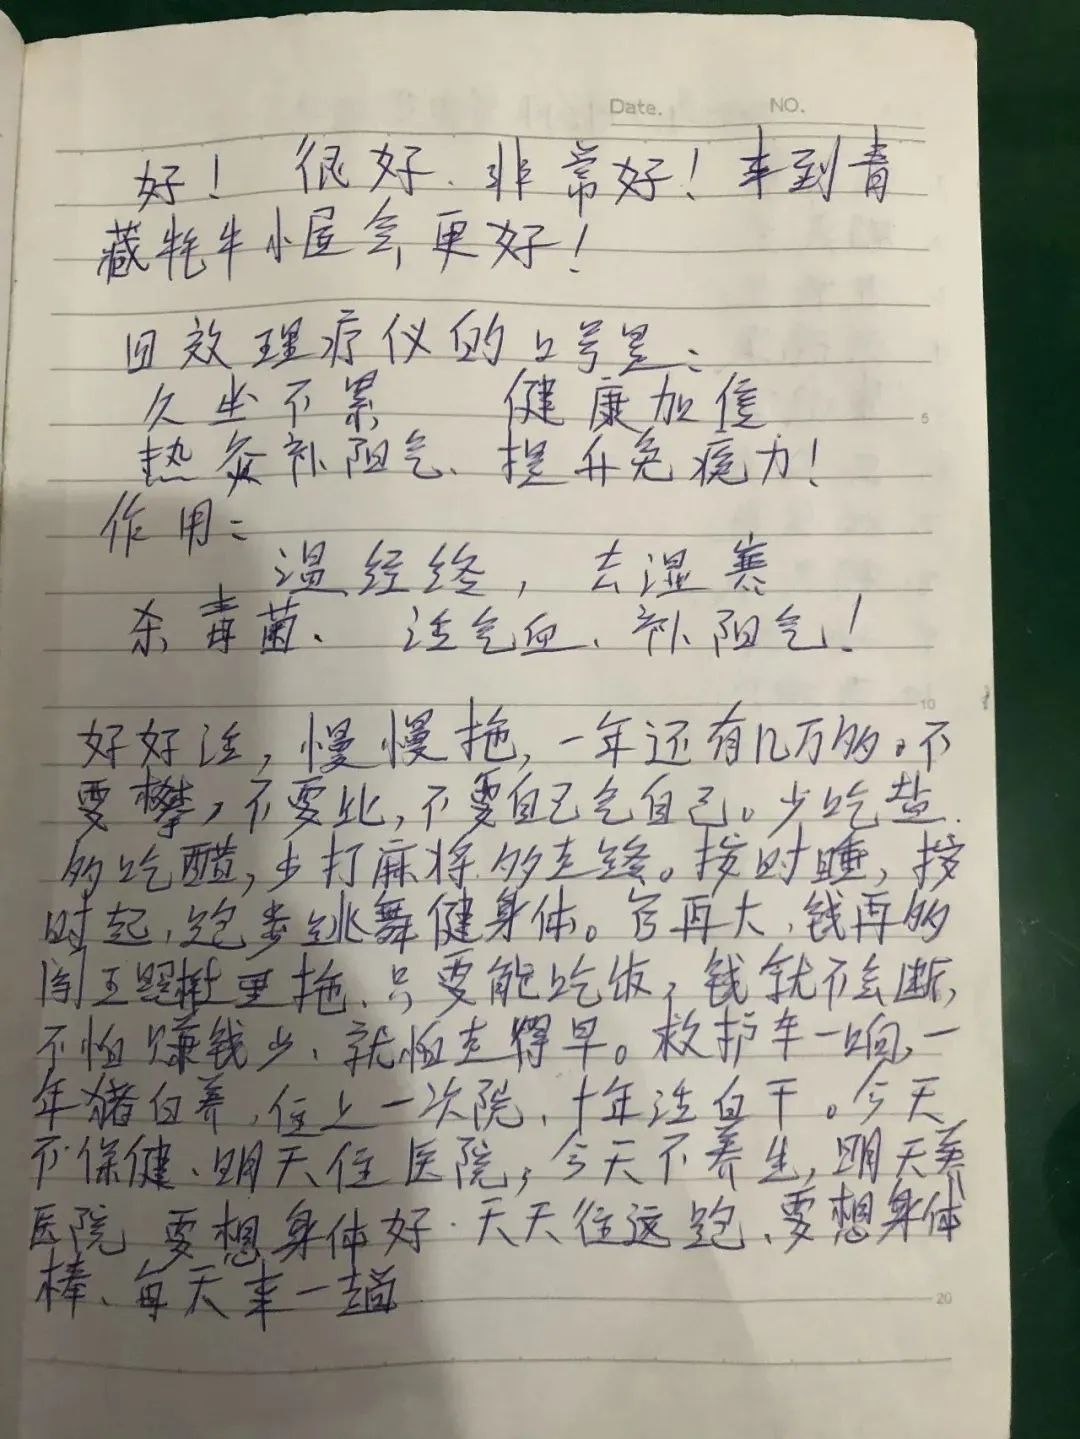 Date. NO.
好！ 很好．非常好！来到青
藏牦牛小屋会更好！
回效理疗仪的口号是：
久坐不累 健康加倍
热灸补阳气、提升免疫力！
作用：
温经络，去湿寒
杀毒菌、活气血、补阳气！
好好活，慢慢拖，一年还有几万多。不
要攀，不要比，不要自己气自己。少吃盐．
多吃醋，少打麻将多走路。按时睡，按
时起，跑步跳舞健身体。官再大，钱再多
阎王照样里拖、只要能吃饭，钱就不会断，
不怕赚钱少、就怕走得早。救护车一响，一
年猪白养，住上一次院、十年活白干。今天
不保健、明天住医院，今天不养生，明天养
医院 要想身体好．天天往这跑、要想身体
棒、每天来一趟
5
10
20